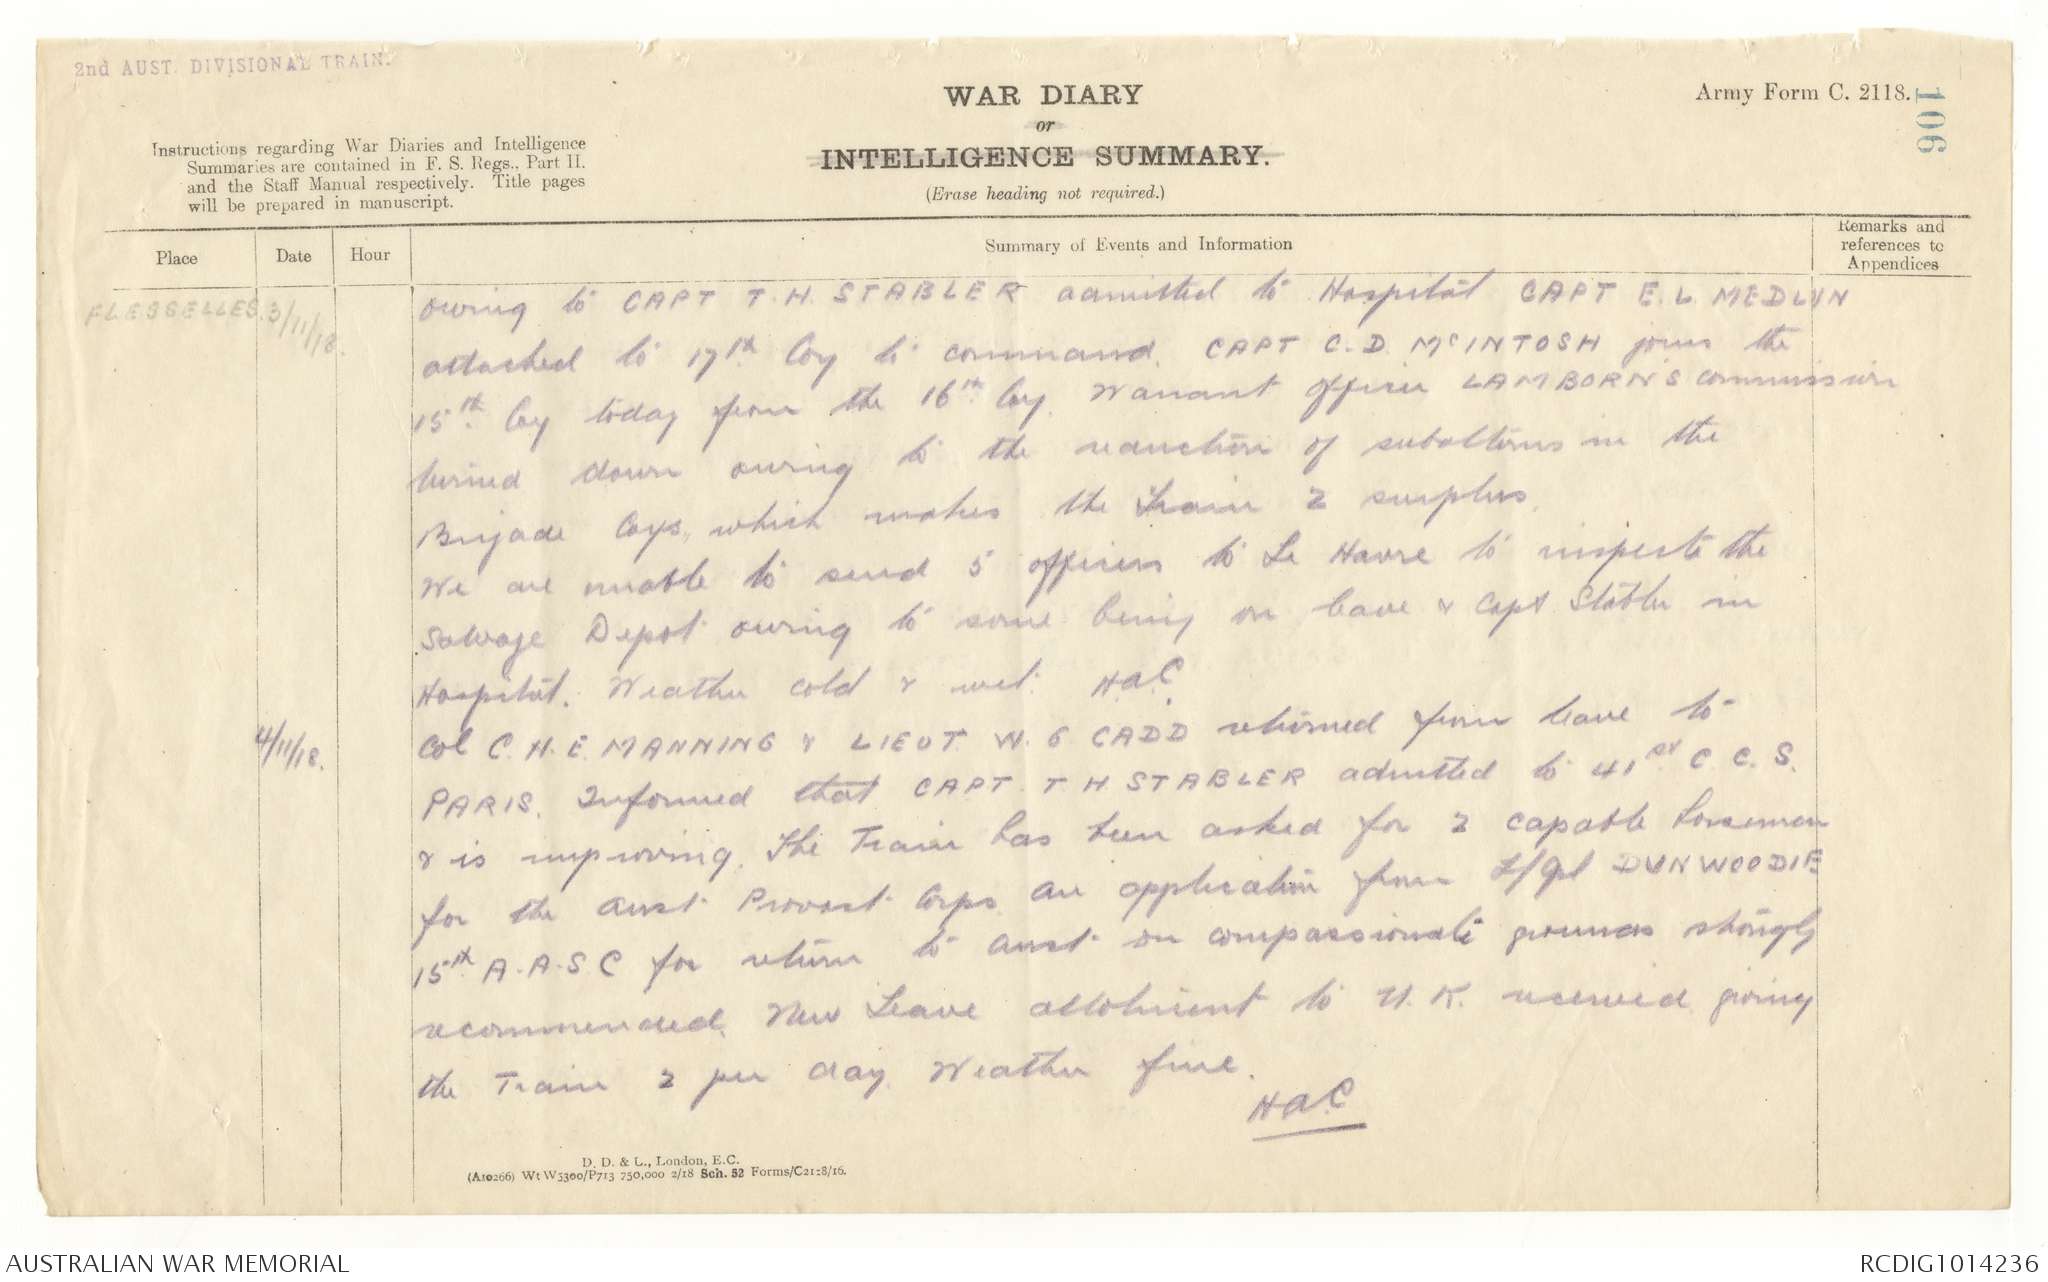 2nd AUST. DIVISIONAL TRAIN.
WAR DIARY
or
INTELLIGENCE SUMMARY.
(Erase heading not required.)
Army Form C. 2118.
106
Instructions regarding War Diaries and Intelligence
Summaries are contained in F. S. Regs., Part II.
and the Staff Manual respectively. Title pages
will be prepared in manuscript.
Place
Date
Hour
Summary of Events and Information
Remarks and
references to
Appendices
FLESSELLES. 3/11/18.
owing to CAPT T. H. STABLER admitted to Hospital CAPT E. L. MEDLYN
attached to 17th Coy to command. CAPT C. D. McINTOSH joins the
15th Coy today from the 16th Coy. Warrant officer LAMBORN'S commission
turned down owing to the reduction of subalterns in the
Brigade Coys, which makes the Train 2 surplus.
We are unable to send 5 officers to Le Havre to inspect the
Salvage Depot owing to some being on leave & Capt Stabler in
Hospital. Weather cold & wet. HaC.
4/11/18.
Col C. H. E. MANNING & LIEUT W. G CADD returned from leave to
PARIS. Informed that CAPT. T. H. STABLER admitted to 41st C. C. S.
& is improving. The Train has been asked for 2 capable horseman
for the Aust. Provost Corps. An application from L/Cpl DUNWOODIE
15th A.A.S.C for return to Aust. on compassionate grounds strongly
recommended. New Leave allotment to U. K. received giving
the Train 2 per day. Weather fine.
HaC
D. D. & L., London, E.C.
(A10266) Wt W5300/P713 750,000 2/18 Sch. 52 Forms/C2118/16.
AUSTRALIAN WAR MEMORIAL
RCDIG1014236